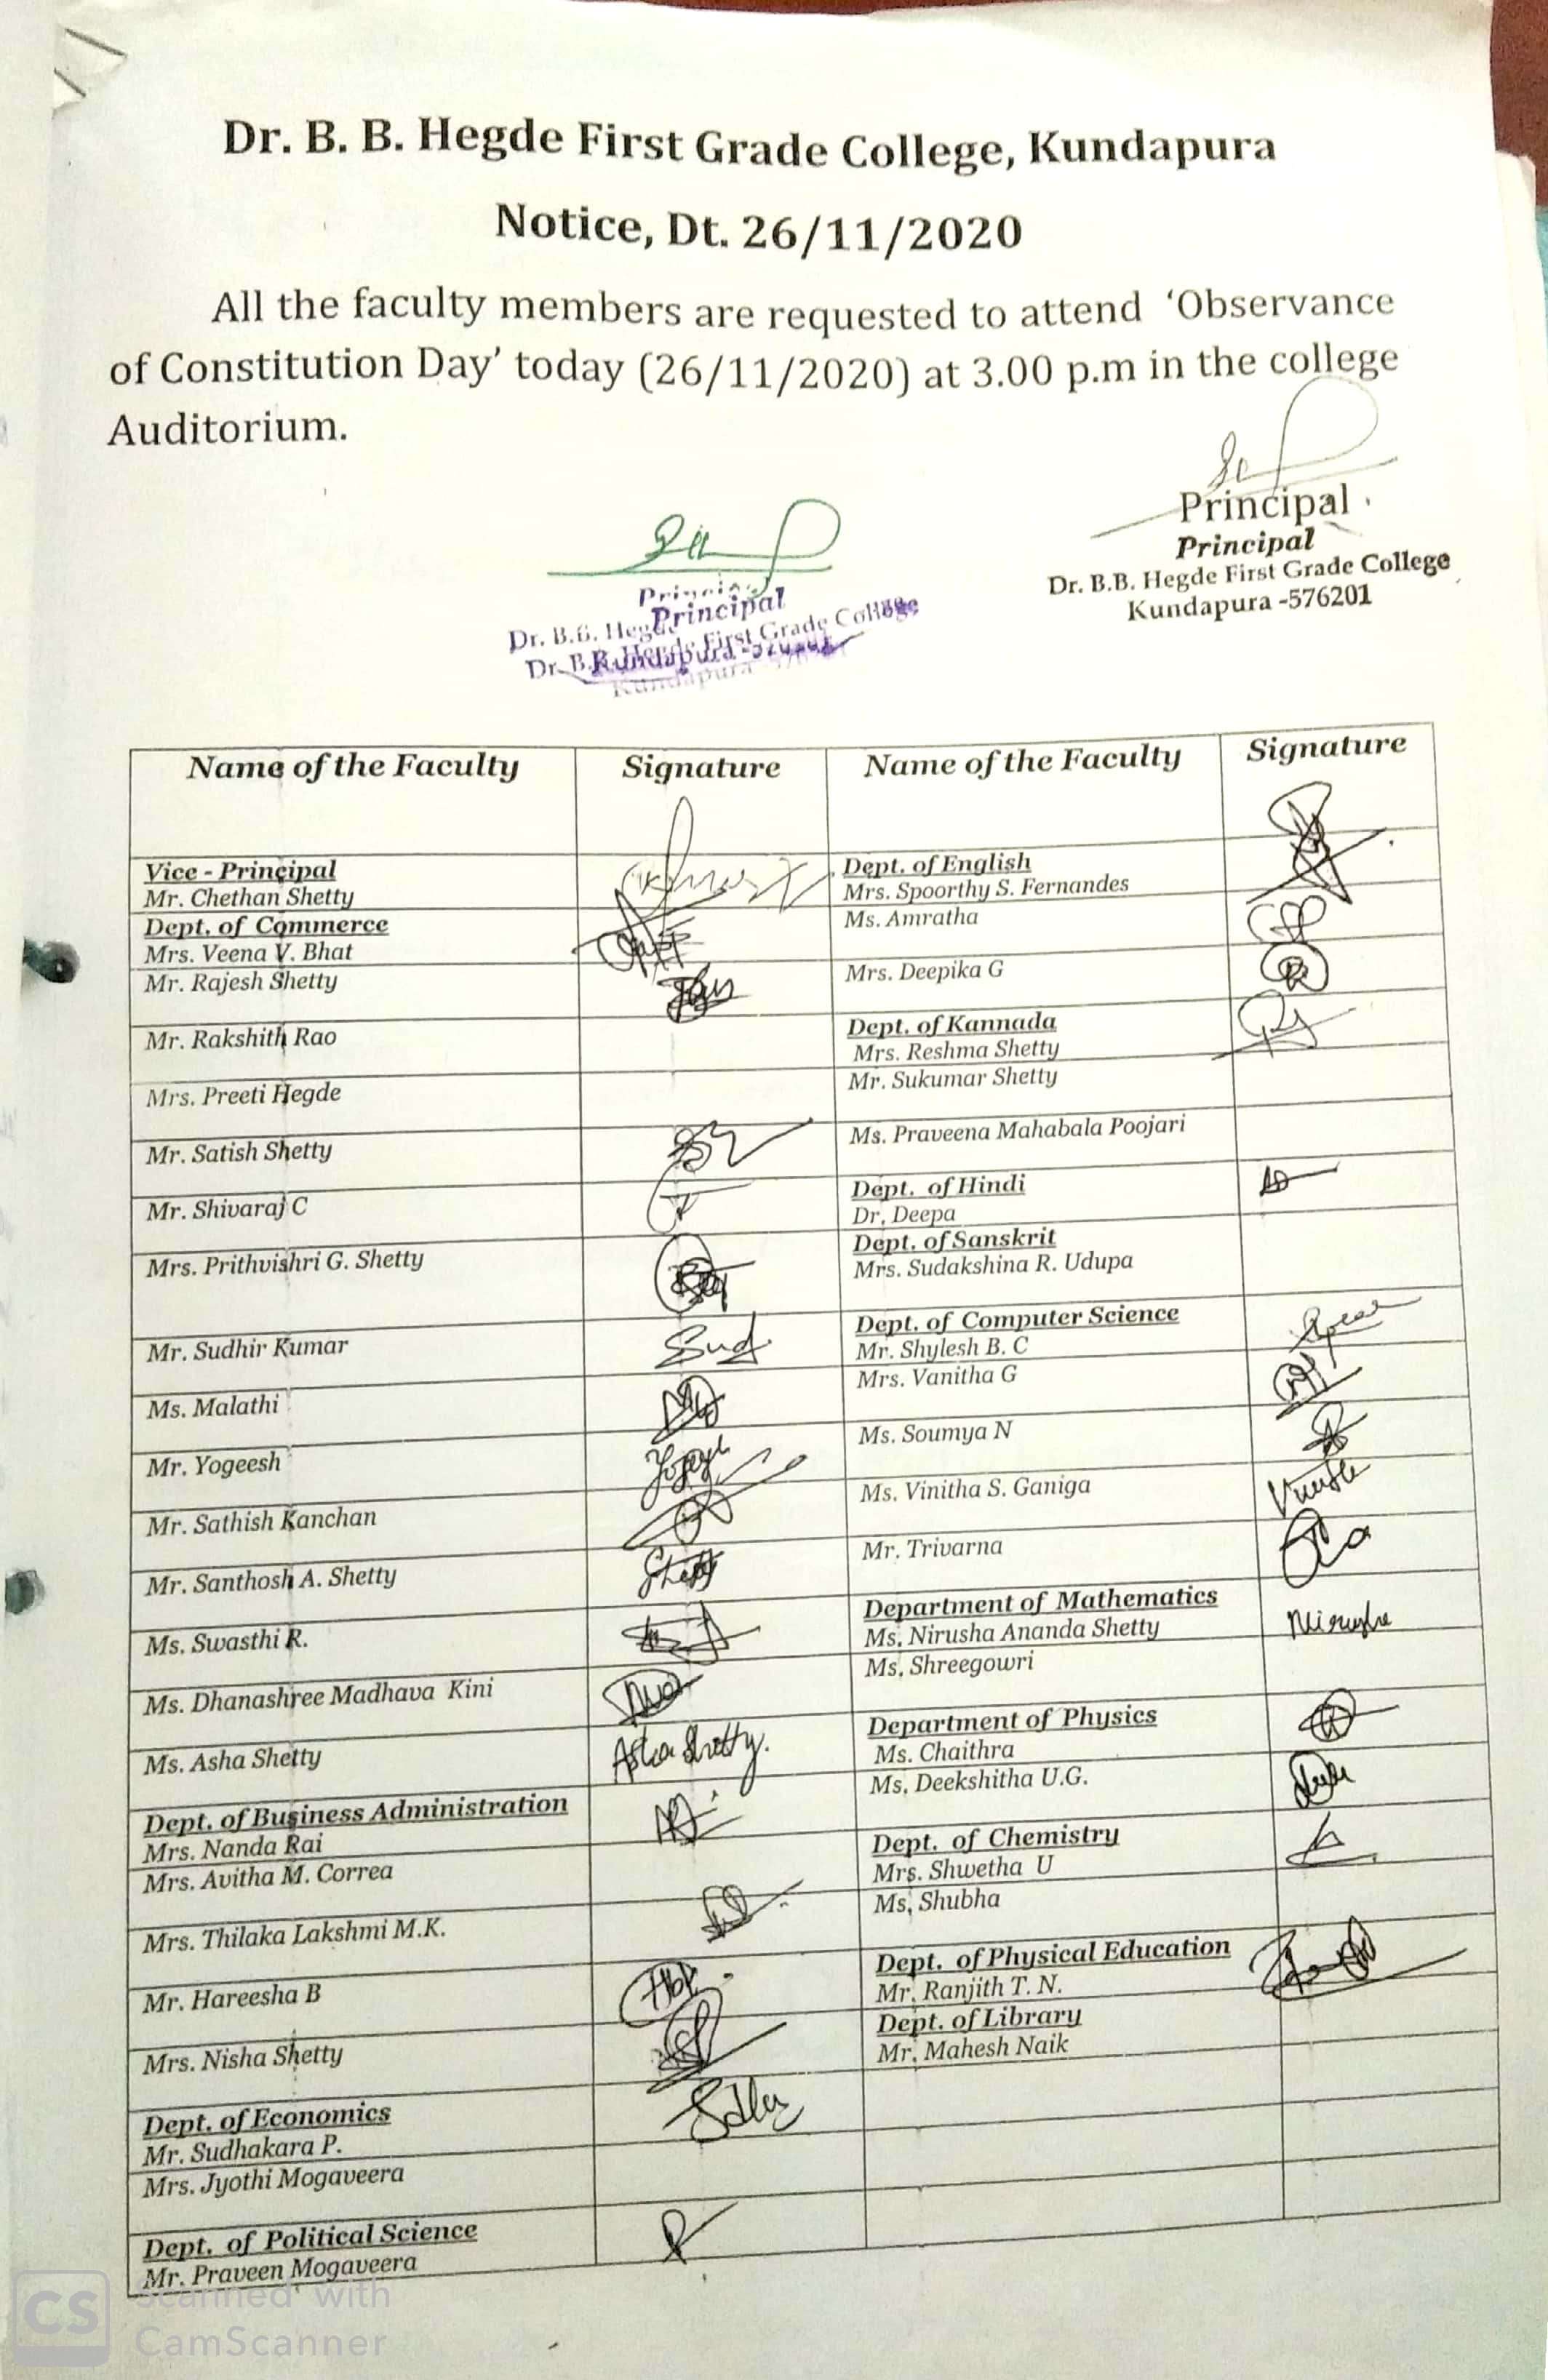 Dr. B. B. Hegde First Grade College, Kundapura
Notice, Dt. 26/11/2020
All the faculty members are requested to attend ‘Observance
of Constitution Day’ today (26/11/2020) at 3.00 p.m in the college
Auditorium.
Principal
Principal
Dr. B.B. Hegde First Grade College
Kundapura -576201
Principal
First Grade College
Kundapura
Name of the Faculty Signature Name of the Faculty Signature
Vice - Principal
Mr. Chethan Shetty
Dept. of English
Mrs. Spoorthy S. Fernandes
Dept. of Commerce
Mrs. Veena V. Bhat
Ms. Amratha
Mr. Rajesh Shetty
Mrs. Deepika G
Mr. Rakshith Rao
Dept. of Kannada
Mrs. Reshma Shetty
Mrs. Preeti Hegde
Mr. Sukumar Shetty
Mr. Satish Shetty
Ms. Praveena Mahabala Poojari
Mr. Shivaraj C
Dept. of Hindi
Dr. Deepa
Mrs. Prithvishri G. Shetty
Dept. of Sanskrit
Mrs. Sudakshina R. Udupa
Mr. Sudhir Kumar
Dept. of Computer Science
Mr. Shylesh B. C
Ms. Malathi
Mrs. Vanitha G
Mr. Yogeesh
Ms. Soumya N
Mr. Sathish Kanchan
Ms. Vinitha S. Ganiga
Mr. Santhosh A. Shetty
Mr. Trivarna
Ms. Swasthi R.
Department of Mathematics
Ms. Nirusha Ananda Shetty Nirusha
Ms. Dhanashree Madhava Kini
Ms. Shreegowri
Ms. Asha Shetty Asha Shetty.
Department of Physics
Ms. Chaithra
Dept. of Business Administration
Mrs. Nanda Rai
Ms. Deekshitha U.G.
Mrs. Avitha M. Correa
Dept. of Chemistry
Mrs. Shwetha U
Mrs. Thilaka Lakshmi M.K.
Ms. Shubha
Mr. Hareesha B
Dept. of Physical Education
Mr. Ranjith T. N.
Mrs. Nisha Shetty
Dept. of Library
Mr. Mahesh Naik
Dept. of Economics
Mr. Sudhakara P.
Mrs. Jyothi Mogaveera
Dept. of Political Science
Mr. Praveen Mogaveera
CS
Scanned with
CamScanner